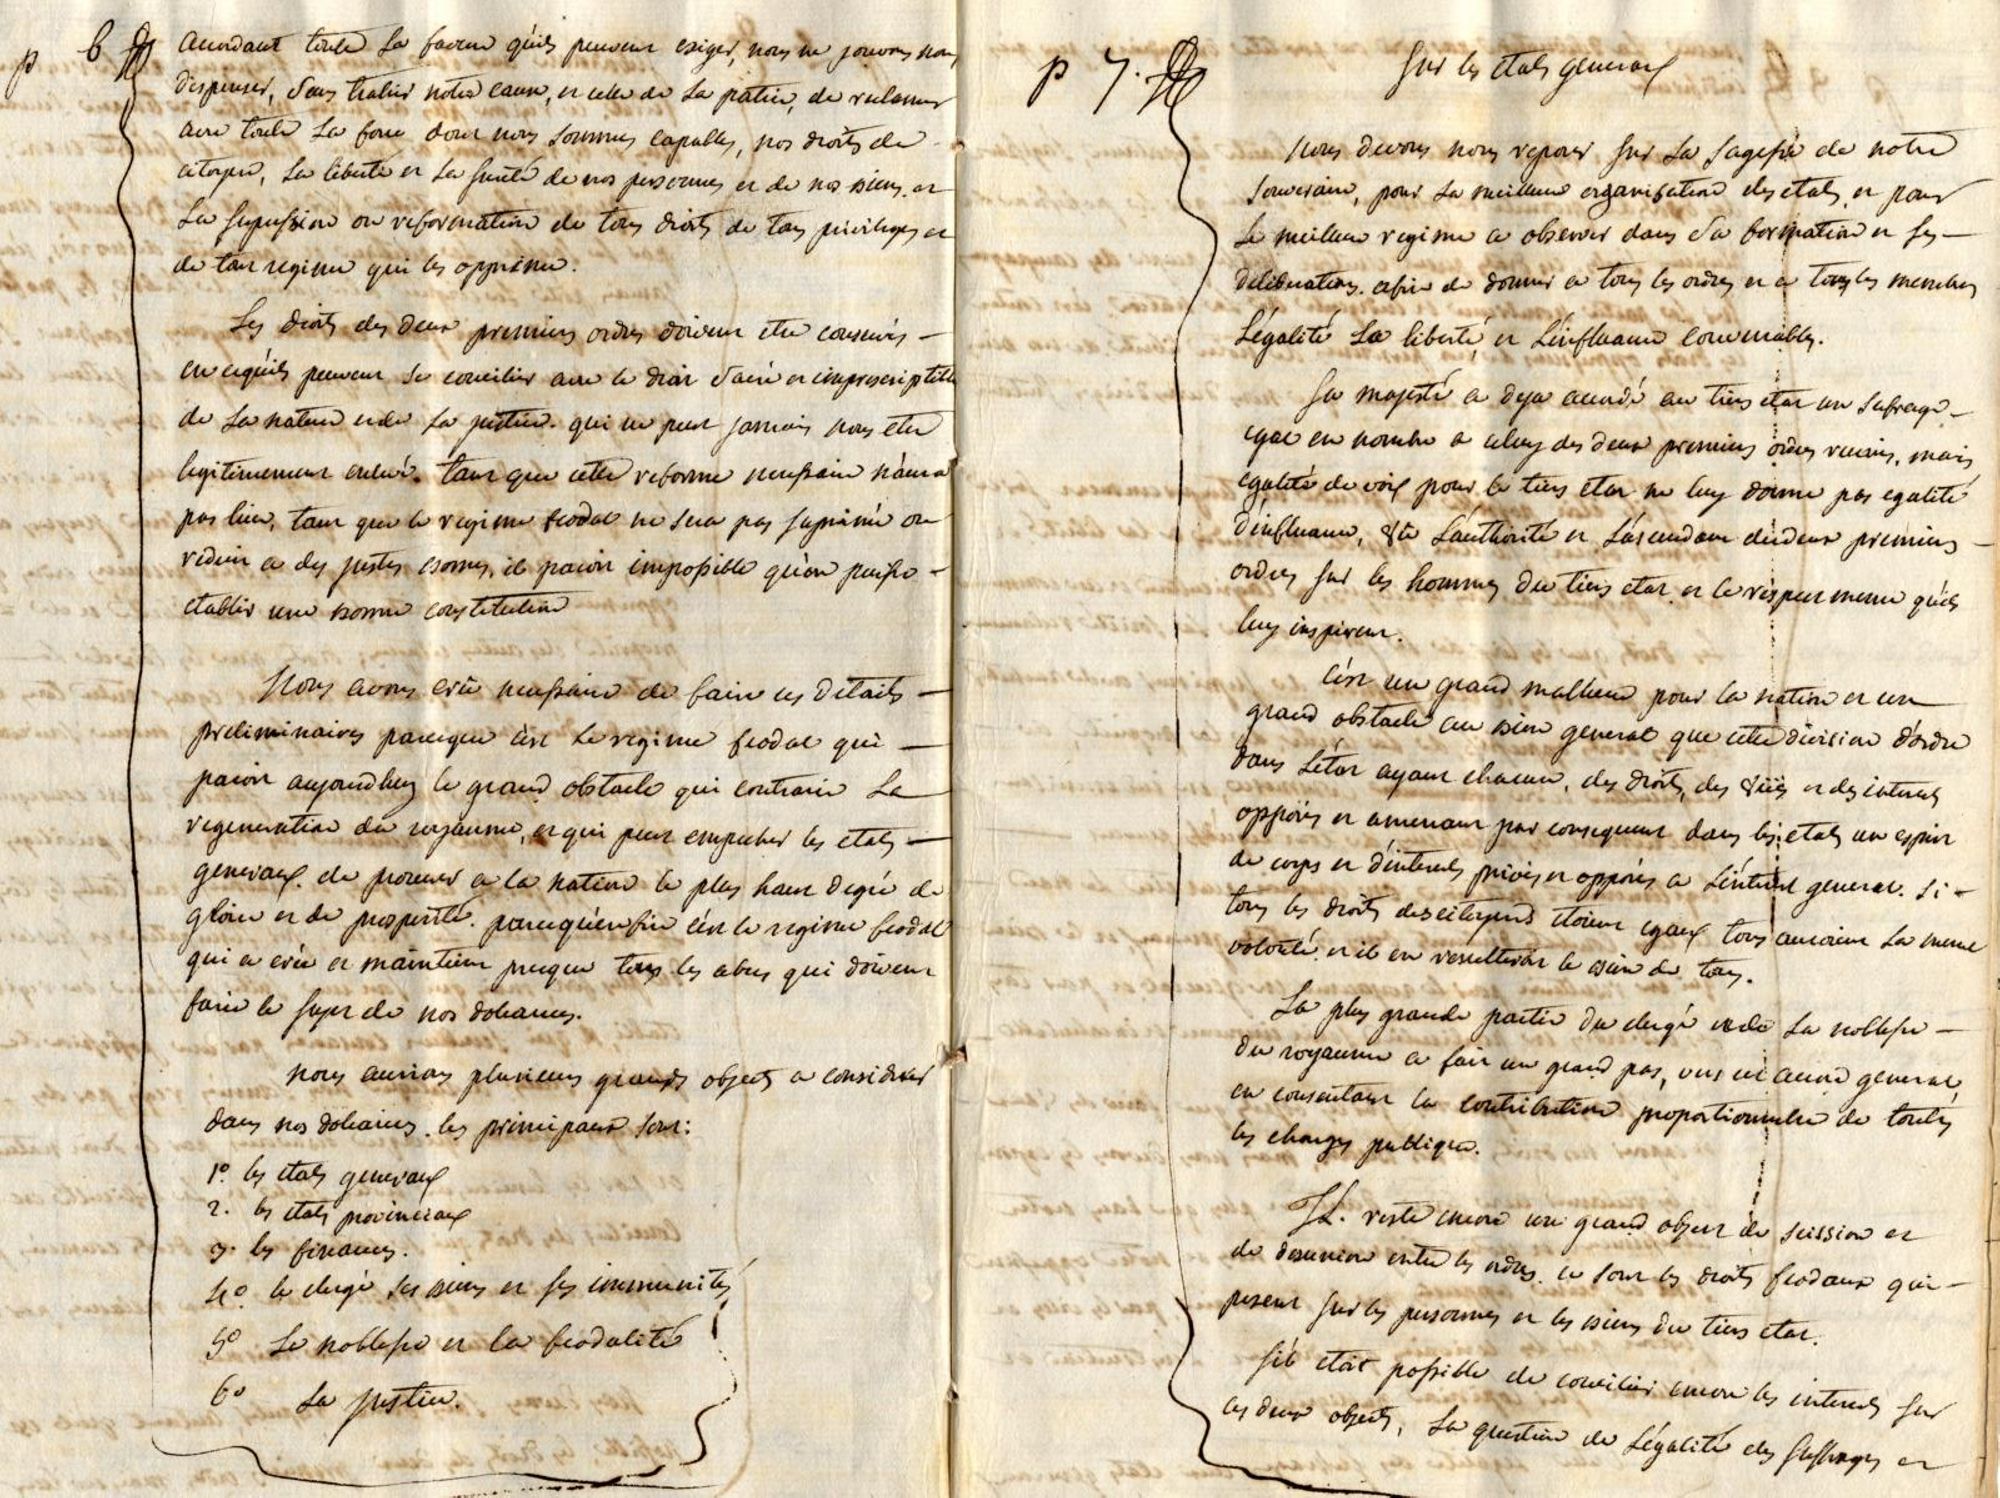 p 6
accordant toute la faveur qu'ils peuvent exiger, nous ne pouvons nous
dispenser, sans trahir notre cause, et celle de la patrie, de reclamer
avec toute la force dont nous sommes capables, nos droits de
citoyen, la liberté et la sureté de nos personnes et de nos biens, et
la supression ou reformation de tous droits de tous privileges et
de tout regime qui les opprime.
Les droits des deux premiers ordres doivent etre conservés
en ce qu'ils peuvent se concilier avec le droit sacré et imprescriptible
de la nature et de la justice. qui ne peut jamais nous etre
legitimement enlevé. tant que cette reforme necessaire n'aura
pas lieu, tant que le regime feodal ne sera pas supprimé ou
reduit a des justes bornes, il paroit impossible qu'on puisse
etablir une bonne constitution
Nous avons crû necessaire de faire ces details
preliminaires parceque c'est le regime feodal qui
paroit aujourdhuy le grand obstacle qui contrarie la
regeneration du royaume, et qui peut empecher les etats
generaux de procurer a la nation le plus haut degré de
gloire et de prosperité. parcequ'enfin c'est le regime feodal
qui a créé et maintient presque tous les abus qui doivent
faire le sujet de nos doleances.
nous aurions plusieurs grands objects a considerer
dans nos doleances. les principaux sont:
1º. les etats generaux
2. les etats provinciaux
3. les finances.
4º. le clergé ses biens et ses immunités
5º La noblesse et la feodalité
6º La justice.
p 7.
Sur les etats generaux
Nous devons nous reposer sur la sagesse de notre
souverain, pour la meilleure organisation des etats, et pour
le meilleur regime a observer dans sa formation et ses
deliberations. afin de donner a tous les ordres et a tous les membres
l'égalité la liberté, et l'influence convenables.
Sa majesté a deja accordé au tiers etat un sufrage
egal en nombre a celuy des deux premiers ordres reunis, mais
egalité de voix pour le tiers etat ne luy donne pas egalité
d'influence, vû l'authorité et l'ascendant des deux premiers
ordres sur les hommes du tiers etat, et le respect meme qu'ils
luy inspirent.
C'est un grand malheur pour la nation et un
grand obstacle au bien general que cette division d'ordre
dans l'état ayant chacun, des droits, des vües et des interets
opposés et amenant par consequent dans les etats un esprit
de corps et d'interets privés et opposés a l'interet general. Si
tous les droits des citoyens etoient egaux tous auroient la meme
volonté, et il en resulteroit le bien de tous.
La plus grande partie du clergé et de la noblesse
du royaume a fait un grand pas, vers cet accord general
en consentant la contribution proportionnelle de toutes
les charges publiques.
Il. reste encore un grand object de scission et
de desunion entre les ordres. ce sont les droits feodaux qui
pesent sur les personnes et les biens du tiers etat.
S'il etait possible de concilier encore les interets sur
ces deux objects, la question de l'égalité des suffrages et